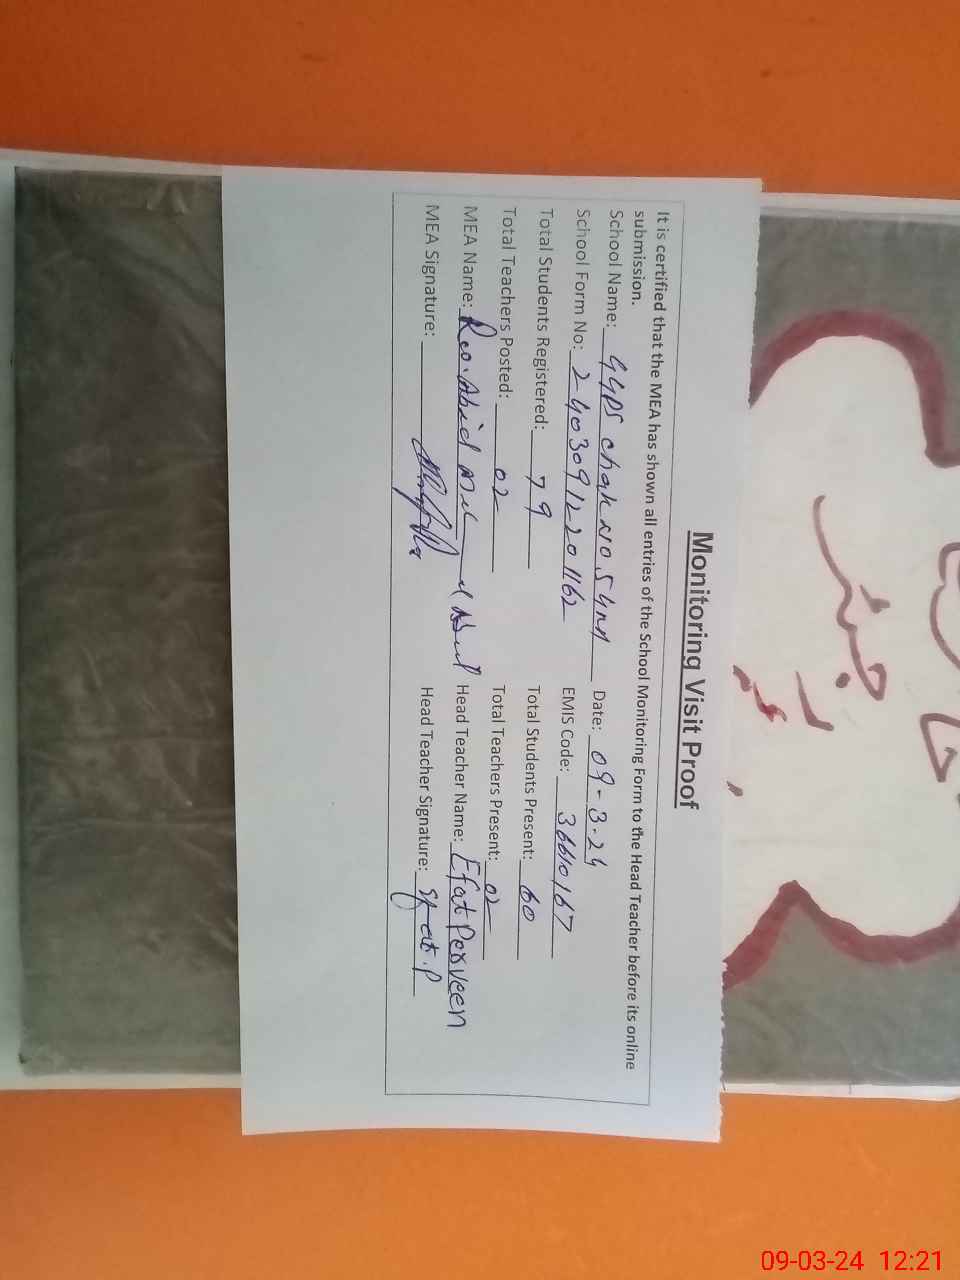 Monitoring Visit Proof
It is certified that the MEA has shown all entries of the School Monitoring Form to the Head Teacher before its online
submission.
School Name: GGPS chak NO 54 Date: 09-3-24
School Form No: 2-4030912201162 EMIS Code: 36610167
Total Students Registered: 79 Total Students Present: 60
Total Teachers Posted: 02 Total Teachers Present: 02
MEA Name: Rao Abid Head Teacher Name: Efat Perveen
MEA Signature: Head Teacher Signature: Efat.P
09-03-24 12:21